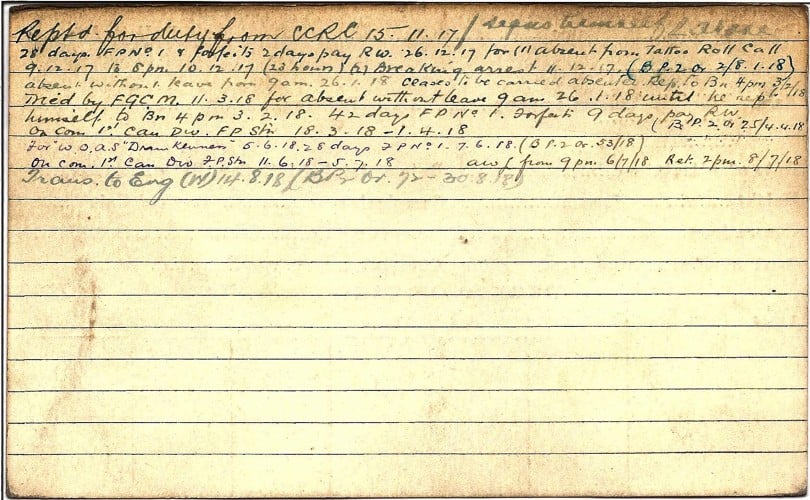 Rept'd for duty from CCRC 15.11.17/
28 days F.P. No 1 & forfeits 2 days pay R.W. 26.12.17 for (1) absent from Tattoo Roll Call
9.12.17 to 8 pm. 10.12.17 (23 hours) (2) Breaking arrest 11.12.17. (B.P.2 Or 2/8.1.18)
absent without leave from 9 am. 26.1.18 Ceases to be carried absent Rep. to Bn 4 pm 3/2/18
Tried by F.G.C.M. 11.3.18 for absent without leave 9 am 26.1.18 until he rept.
himself to Bn 4 pm 3.2.18. 42 days F P No 1. Forfeits 9 days pay R.W.
On Com. 1st Can Div. F.P. Stn 18.3.18 - 1.4.18 (B.P.2 Or 25/4.4.18
For W.O.A.S "Drunkenness" 5.6.18. 28 days F P No 1. 7.6.18. (B.P.2 Or. 53/18)
On com. 1st Can Div F.P. Stn 11.6.18 - 5.7.18 awl from 9 pm. 6/7/18 Ret. 2 pm. 8/7/18
Trans. to Eng (W) 14.8.18 (B P2 Or. 72 - 30.8.18)